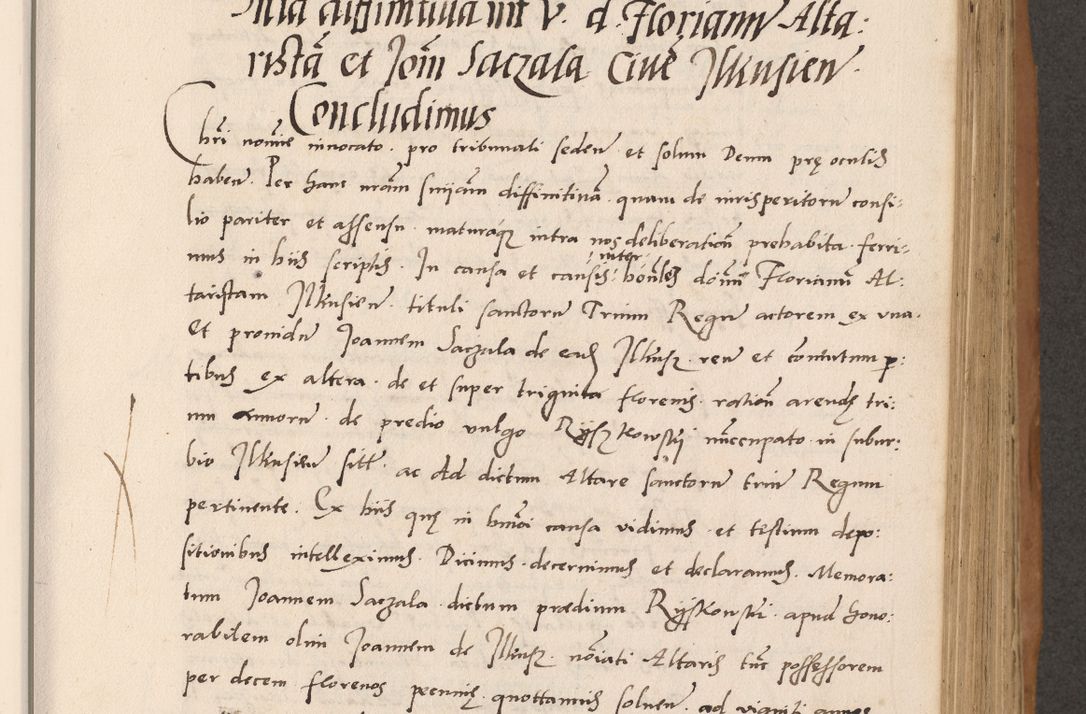 Snia diffinitiua int v. d. Florianū Alta:
ristā et Joēm Saczala Ciuē Jlkusien̄.
Concludimus
Chri nomīe innocato. pro tribunali seden̄ et solum Deum prę oculis
haben̄. Per hanc nrām sniām diffinitiuā. quam de iurisperitorū consi-
lio pariter et assensu. maturáq̨ intra nos deliberatiōn prehabita. ferri-
mus in hiis scriptis. Jn causa et causis inter honles domū Florianū Al:
taristam Jlkusien̄. tituli sanctorū Trium Regū actorem ex vna.
Et prouidū Joannem Saczala de eadȝ Jlkusȝ. reū et conuntum p:
tibus ex altera. de et super triginta florenis. rationē arendȩ tri:
um annorū. de predio vulgo Ryssȝkowsky nūcupato in subur:
bio Jlkusien̄ sitt̄. ac Ad dictum Altare sanctorū trium Regum
pertinente. Ex hiis quę in hmōi causa vidimus. et testium depo:
sitionibus intelleximus. Dicimus decernimus et declaramus. Memora:
tum Joannem Saczala. dictum prædium Ryskowsky. apud hono:
rabilem olim Joannem de Jlkusȝ. nōiati Altaris tūc possessorem
per decem florenos pecuniȩ. quottannis soluen̄. ad viginti annos